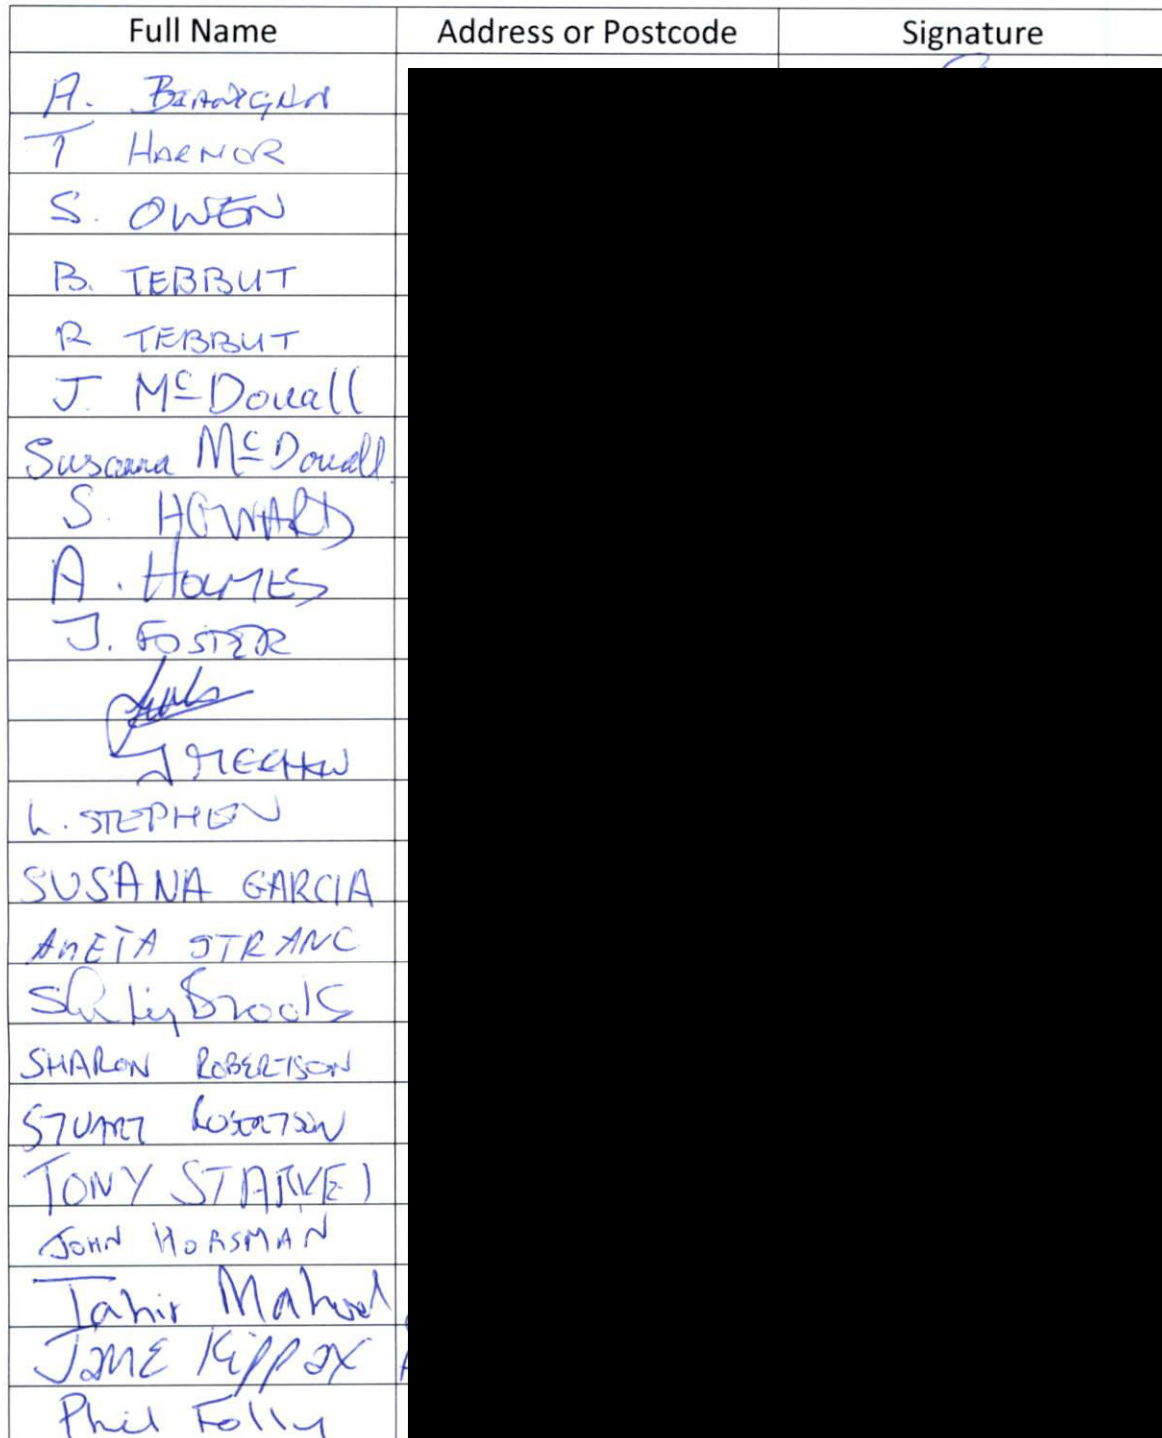 Full Name Address or Postcode Signature
A.
T HARNOR
S. OWEN
B. TEBBUT
R TEBBUT
J. McDouall
Susanna McDouall
S. HOWARD
A. HOLMES
J. FOSTER
L. STEPHEN
SUSANA GARCIA
ANETA STRANC
Shirley Brooks
SHARON ROBERTSON
STUART ROBERTSON
TONY
JOHN HORSMAN
Tahir
Jane Kippax
Phil Folly